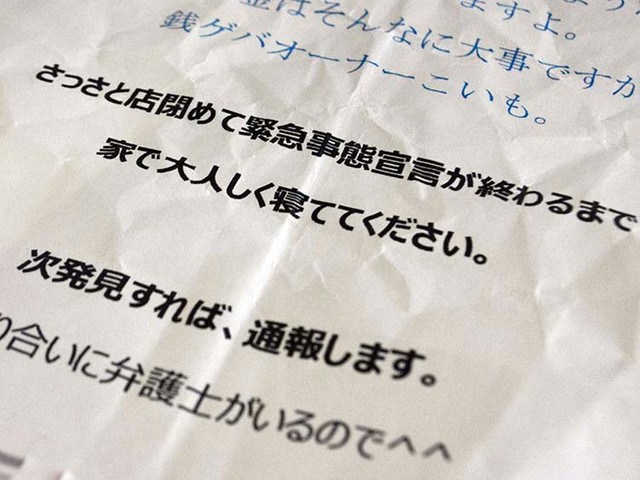 ますよ。
金はそんなに大事ですか
銭ゲバオーナーこいも。
さっさと店閉めて緊急事態宣言が終わるまで
家で大人しく寝ててください。
次発見すれば、通報します。
り合いに弁護士がいるのでへへ